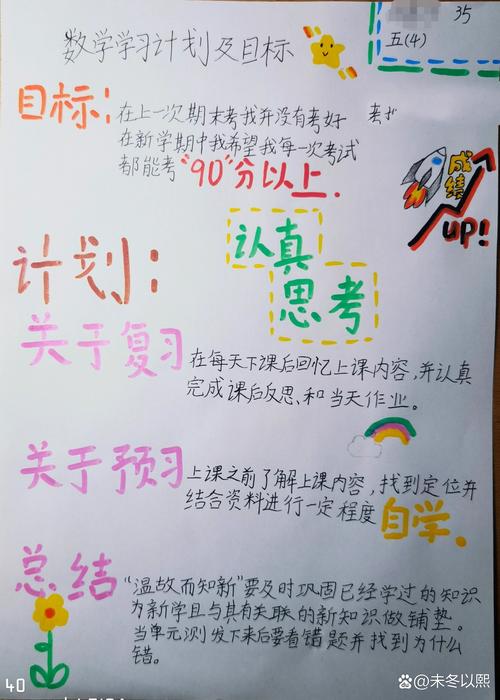 35
五(4)
数学学习计划及目标
目标:
在上一次期末考我并没有考好
在新学期中我希望我每一次考试
都能考“90”分以上.
成绩
up!
认真
思考
计划:
关于复习
在每天下课后回忆上课内容,并认真
完成课后反思、和当天作业。
关于预习
上课之前了解上课内容,找到定位并
结合资料进行一定程度自学.
总结
“温故而知新”要及时巩固已经学过的知识
为新学且与具有关联的新知识做铺垫。
当单元测发下来后要看错题并找到为什么
错。
40
@未冬以熙